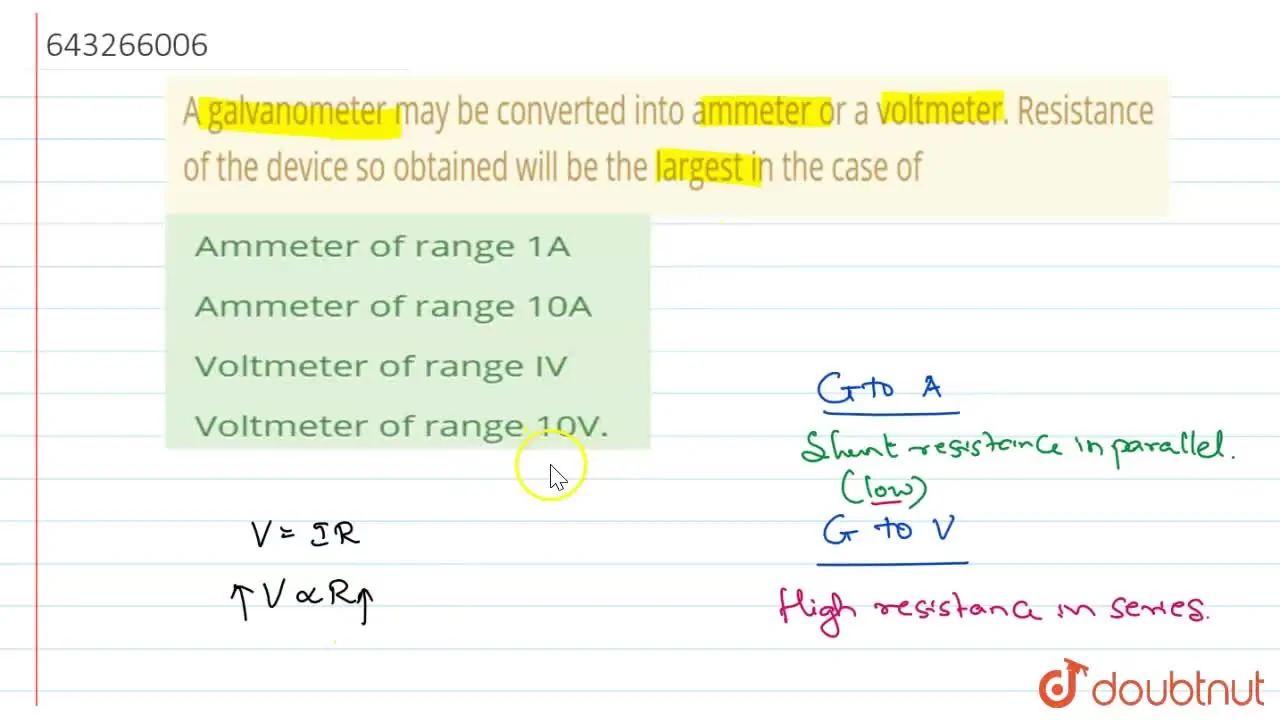 643266006
A galvanometer may be converted into ammeter or a voltmeter. Resistance
of the device so obtained will be the largest in the case of
Ammeter of range 1A
Ammeter of range 10A
Voltmeter of range IV
Voltmeter of range 10V.
G to A
Shunt resistance in parallel.
(low)
G to V
High resistance in series.
V = IR
↑ V ∝ R ↑
doubtnut